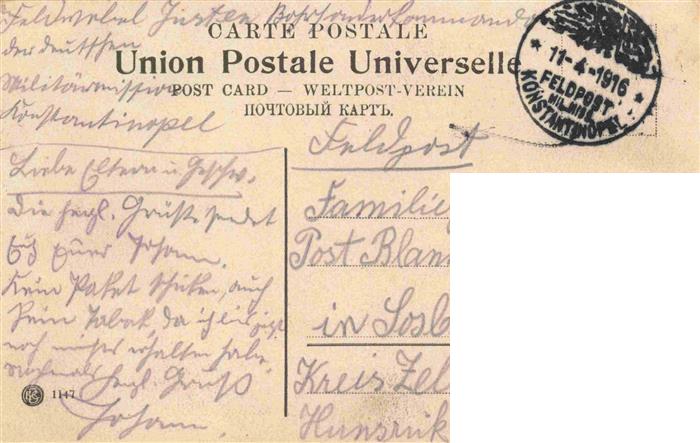 Feldwebel Justen Bahnsonderkommando
der deutschen
Militärmission
Konstantinopel
CARTE POSTALE
Union Postale Universelle
POST CARD — WELTPOST-VEREIN
ПОЧТОВЫЙ КАРТЪ.
11-4-1916
FELDPOST
MIL.MISS.
KONSTANTINOPEL
Liebe Eltern u. Geschw.
Die herzl. Grüße sendet
Euch Euer Johann.
Kein Paket schicken, auch
kein Tabak, da ich bis jetzt
noch nichts erhalten habe.
Nochmals herzl. Gruß
Johann.
1147
Feldpost
Familie
Post Blan
in Sosb
Kreis Zel
Hunsrük